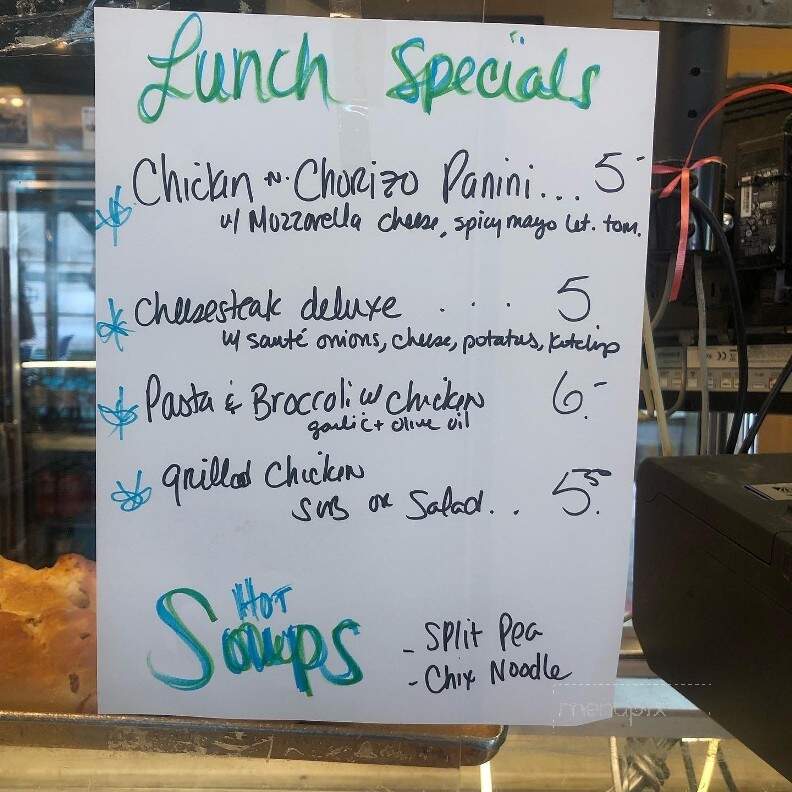 Lunch Specials
Chicken n. Chorizo Panini... 5-
w/ Mozzarella cheese, spicy mayo let. tom.
cheesesteak deluxe . . . 5
w/ sauté onions, cheese, potatoes, Ketchup
Pasta & Broccoli w/ chicken 6.-
garlic + olive oil
grilled Chicken
SUB OR Salad.. 5.50
HOT
Soups
- Split Pea
- Chix Noodle
menupix